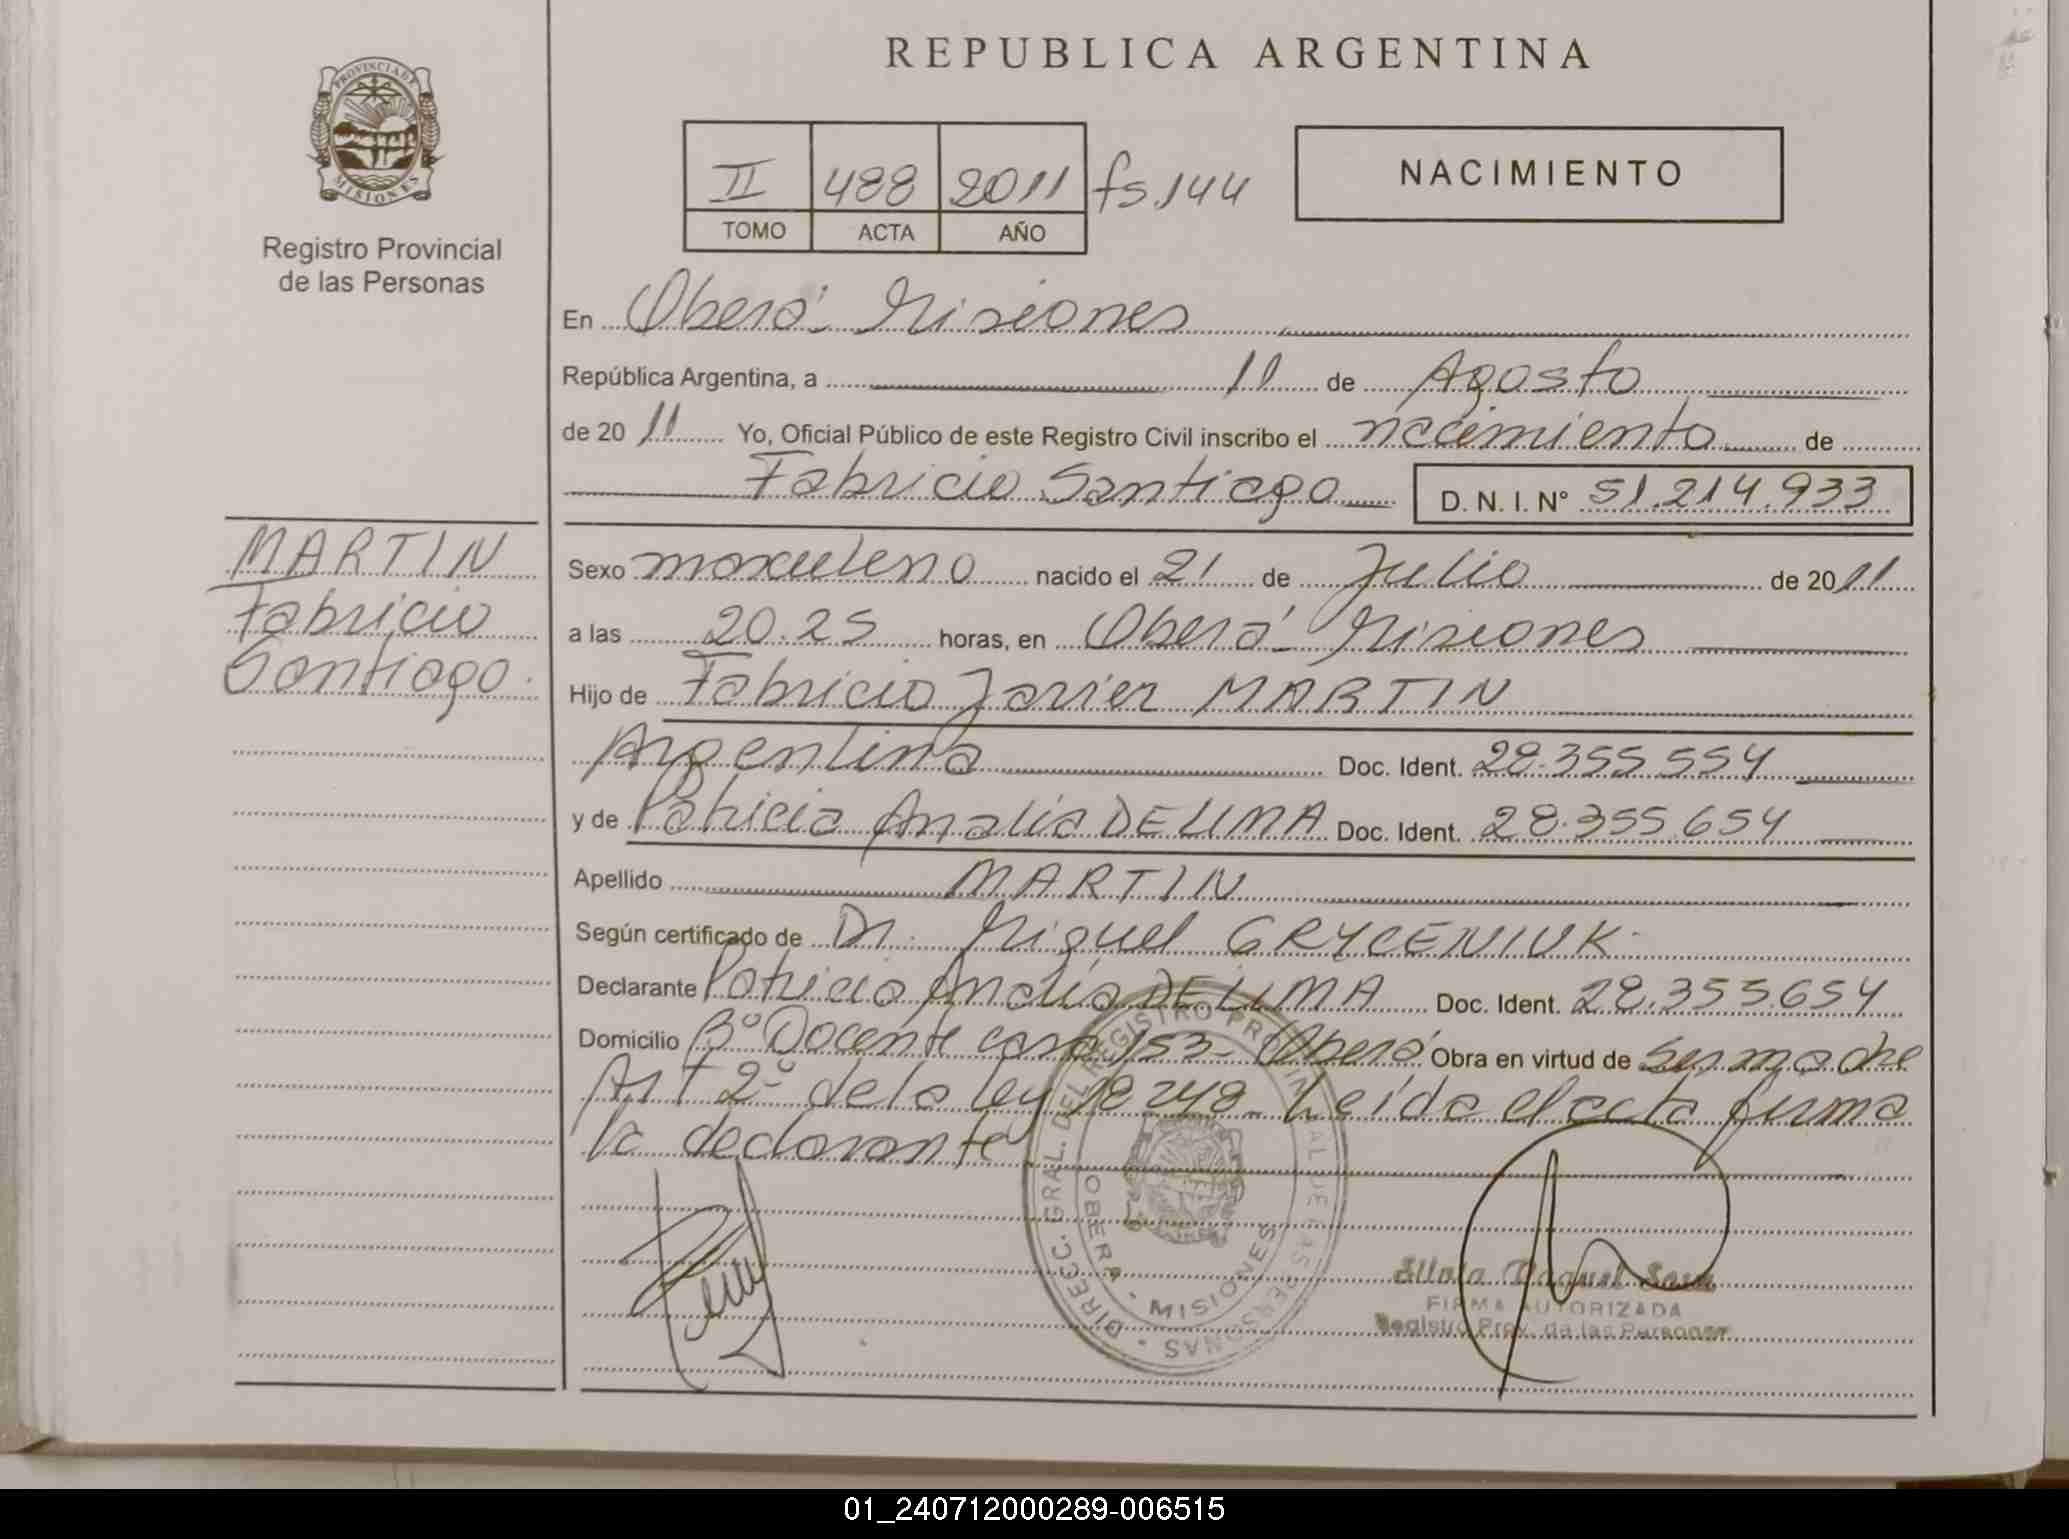 REPUBLICA ARGENTINA
PROVINCIA DE
MISIONES
Registro Provincial
de las Personas
II 488 2011 fs.144
TOMO ACTA AÑO
NACIMIENTO
En Oberá Misiones
República Argentina, a 11 de Agosto
de 2011 Yo, Oficial Público de este Registro Civil inscribo el nacimiento de
Fabricio Santiago D. N. I. N° 51.214.933
MARTIN
Fabricio
Santiago.
Sexo masculino nacido el 21 de Julio de 2011
a las 20.25 horas, en Oberá Misiones
Hijo de Fabricio Javier MARTIN
Argentina Doc. Ident. 28.355.554
y de Patricia Analía DE LIMA Doc. Ident. 28.355.654
Apellido MARTIN
Según certificado de Dr. Miguel GRYCENIUK.
Declarante Patricia Analía DE LIMA Doc. Ident. 28.355.654
Domicilio B° Docente casa 153 Oberá Obra en virtud de ser madre
Art 2° de la ley 18248. Leída el acta firma
la declarante
DIRECC. GRAL. DEL REGISTRO PROVINCIAL DE LAS PERSONAS
OBERA - MISIONES
Raquel
FIRMA AUTORIZADA
Registro Prov. de las Personas
01_240712000289-006515